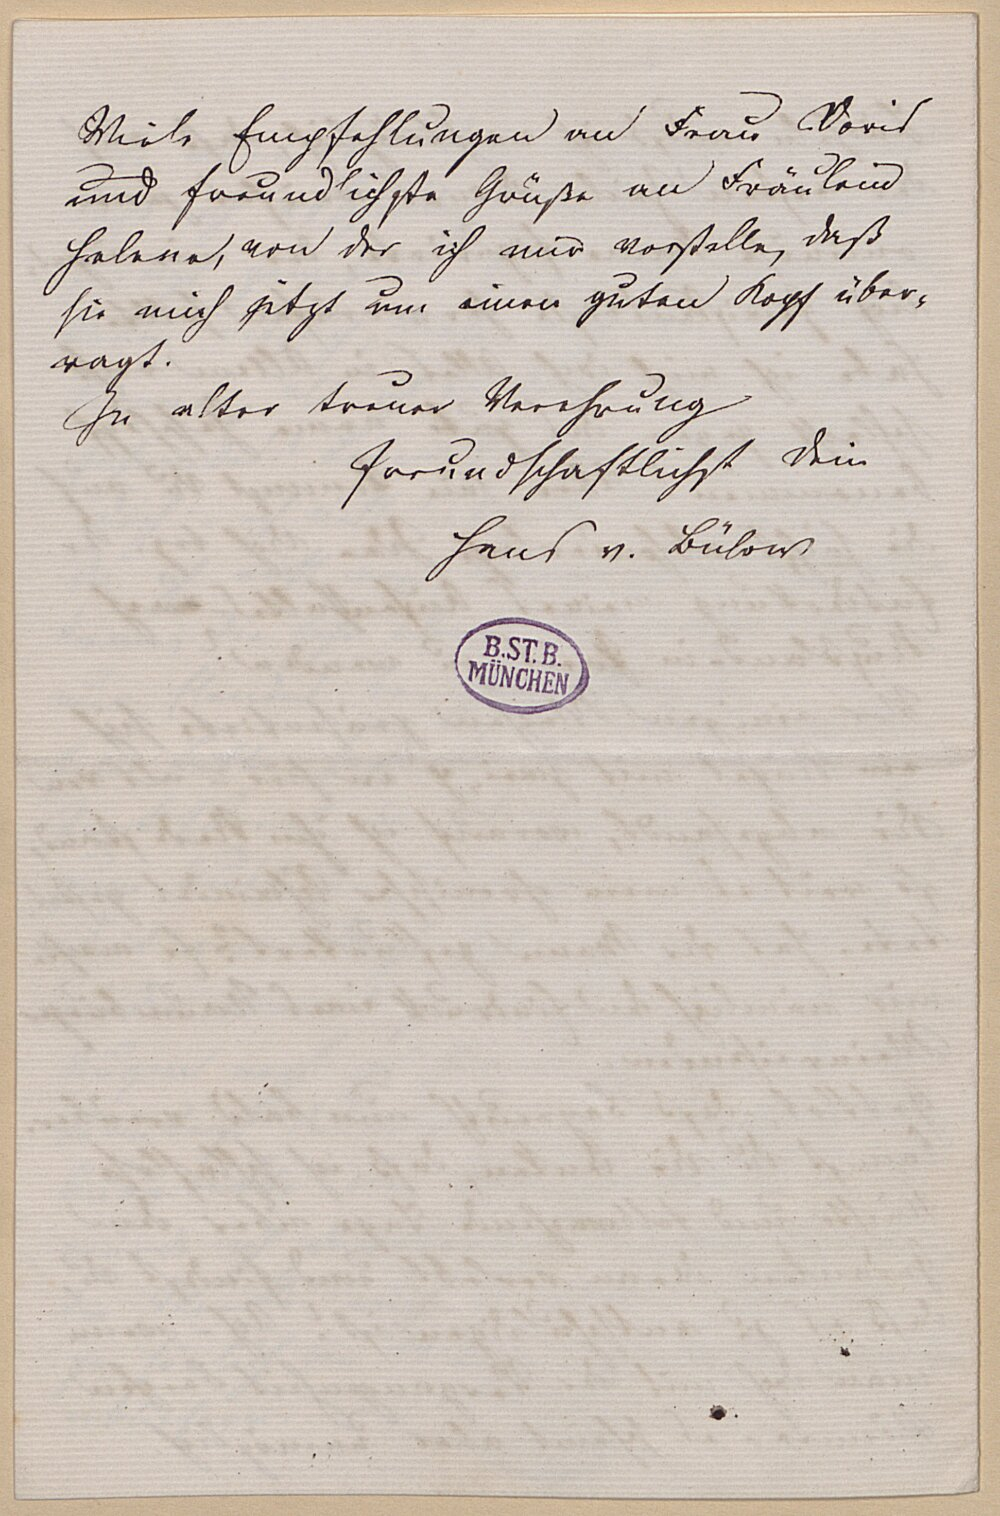 Viele Empfehlungen an Frau Doris
und freundlichste Grüße an Fräulein
Helene, von der ich mir vorstelle, daß
sie mich jetzt um einen guten Kopf über-
ragt.
In alter treuer Verehrung
freundschaftlichst Dein
Hans v. Bülow
B.ST.B.
MÜNCHEN